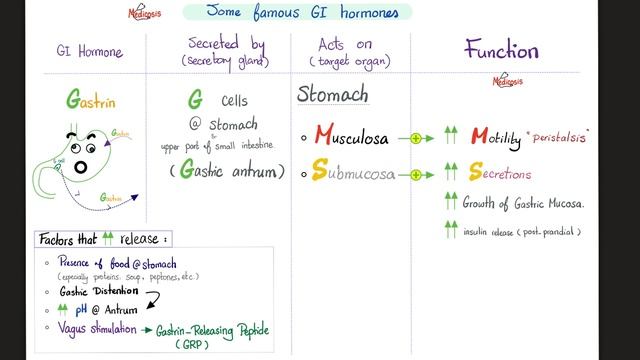 Medicosis
Some famous GI hormones
GI Hormone
Secreted by
(secretory gland)
Acts on
(target organ)
Function
Medicosis
Gastrin
G cells
@ stomach
&
upper part of small intestine
(Gastic antrum)
Stomach
Musculosa
Submucosa
Motility "peristalsis"
Secretions
Growth of Gastric Mucosa.
insulin release (post-prandial)
Gastrin
G cell
Gastrin
Factors that release :
Presence of food @ stomach
(especially proteins. soup, peptones, etc.)
Gastric Distention
pH @ Antrum
Vagus stimulation → Gastrin-Releasing Peptide
(GRP)